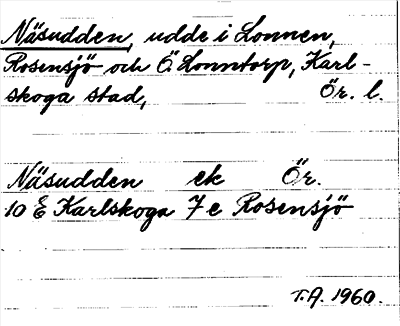 Näsudden, udde i Lonnen,
Rosensjö och Ö. Lonntorp, Karl-
skoga stad, Ör. l.
Näsudden ek Ör.
10 E Karlskoga 7 e Rosensjö
T.A. 1960.